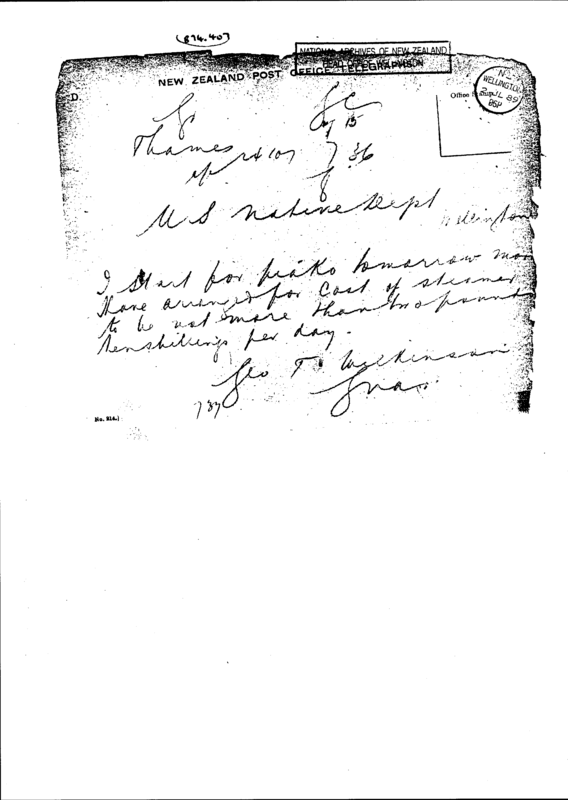 (874.407)
NATIONAL ARCHIVES OF NEW ZEALAND
NEW ZEALAND POST OFFICE TELEGRAPHS
D.
WELLINGTON
JL 89
Office
15
Thames
7 36
U S native Dept
Wellington
I start for piako tomorrow
Have arranged for cost of steamer
to be not more than two pounds
tenshillings per day.
Geo T Wilkinson
737
No. 814.)